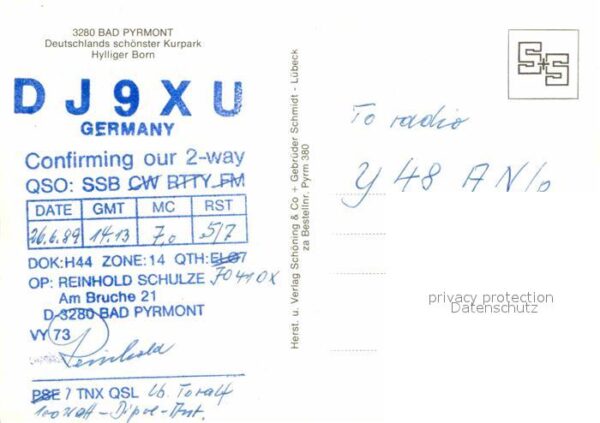 3280 BAD PYRMONT
Deutschlands schönster Kurpark
Hylliger Born
DJ9XU
GERMANY
Confirming our 2-way
QSO: SSB CW RTTY FM
DATE GMT MC RST
26.6.89 14.13 7,0 5/7
DOK:H44 ZONE:14 QTH:EL07
JO41OX
OP: REINHOLD SCHULZE
Am Bruche 21
D-3280 BAD PYRMONT
VY 73
Reinhold
PSE 7 TNX QSL lb. Toralf
100 Watt - Dipol-Ant.
Herst. u. Verlag Schöning & Co + Gebrüder Schmidt - Lübeck
za Bestellnr. Pyrm 380
S+S
To radio
Y48
privacy protection
Datenschutz